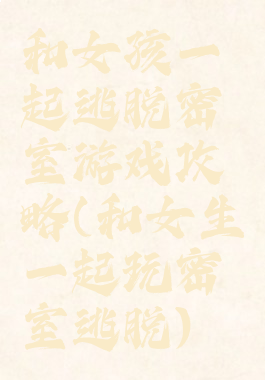 和女孩一
起逃脱密
室游戏攻
略(和女生
一起玩密
室逃脱)